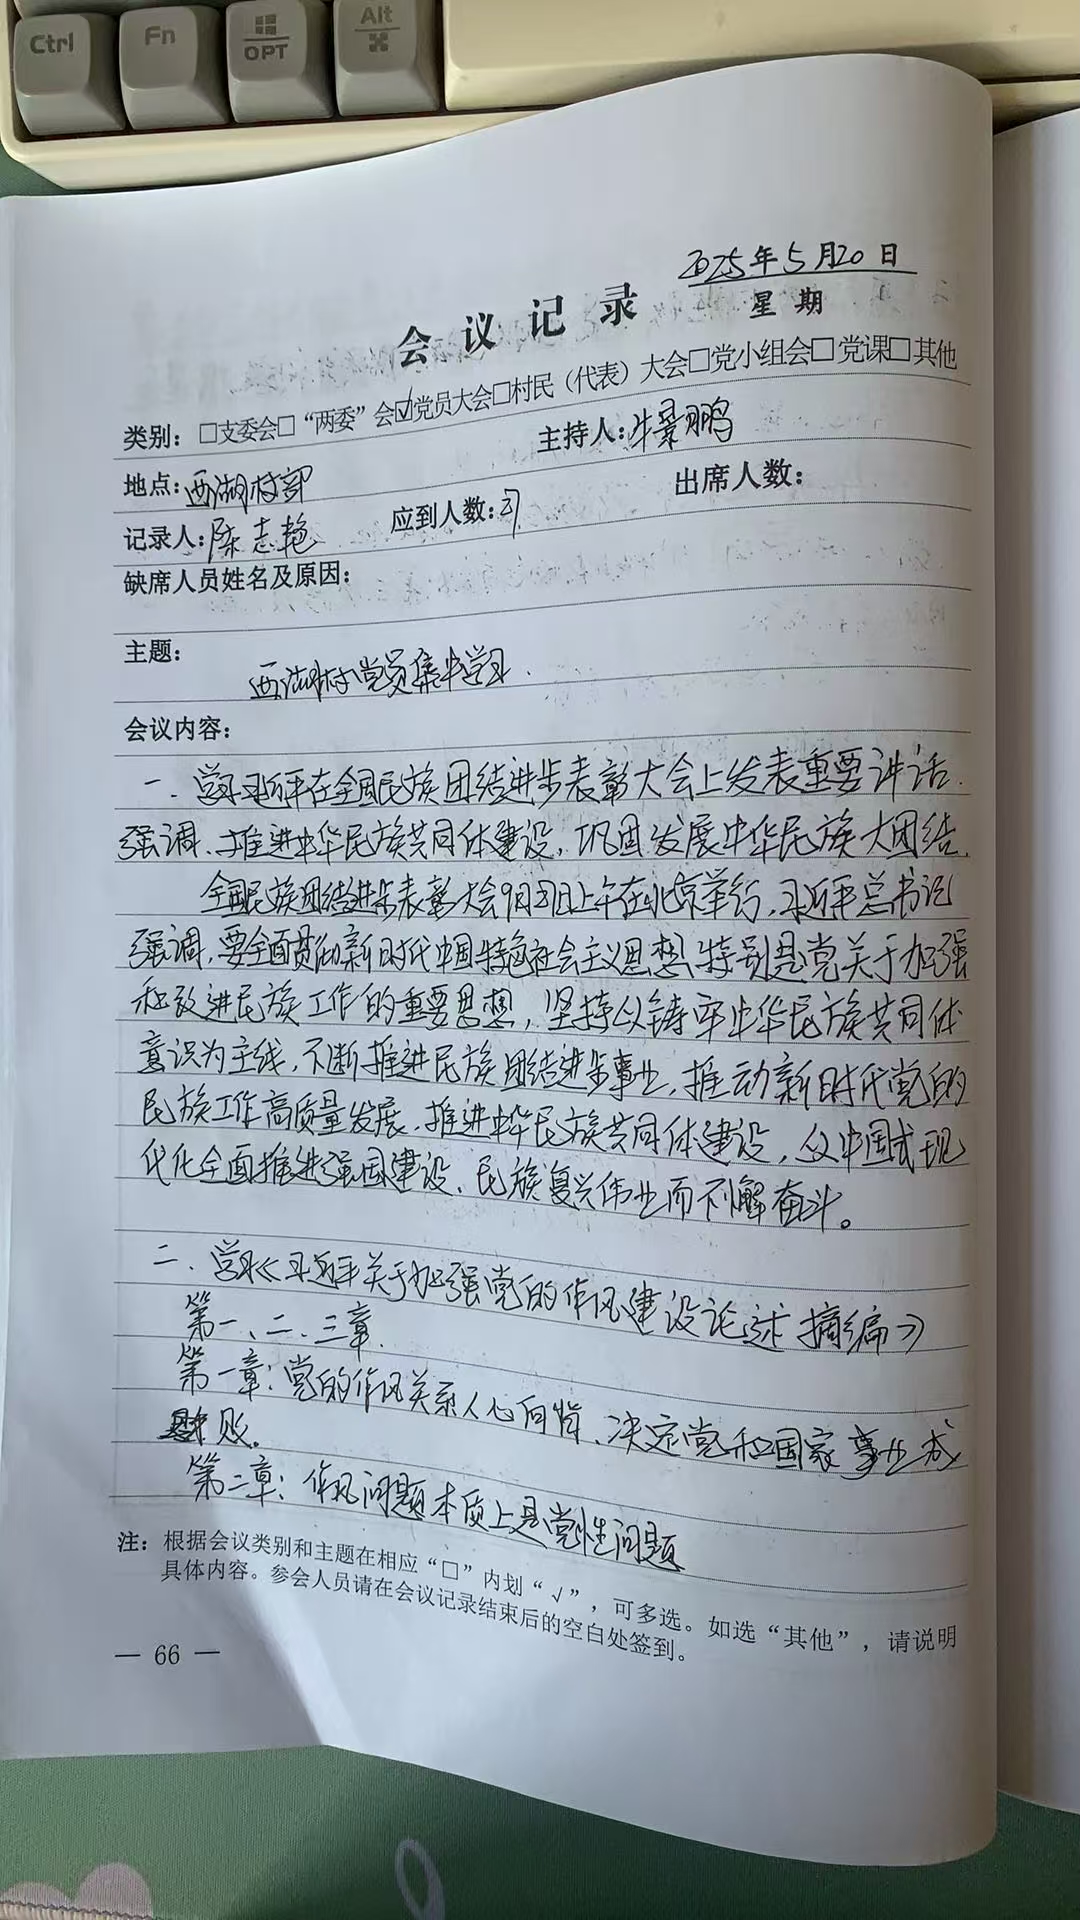 Ctrl
Fn
OPT
Alt
2025年5月20日
星期
会议记录
类别：□支委会□“两委”会☑党员大会□村民（代表）大会□党小组会□党课□其他
地点：西湖村部 主持人：牛景鹏
记录人：陈志艳 应到人数： 出席人数：
缺席人员姓名及原因：
主题：
西湖村党员集中学习.
会议内容：
一、学习习近平在全国民族团结进步表彰大会上发表重要讲话.
强调、推进中华民族共同体建设，巩固发展中华民族大团结.
全国民族团结进步表彰大会9月27日上午在北京举行，习近平总书记
强调，要全面贯彻新时代中国特色社会主义思想、特别是党关于加强
和改进民族工作的重要思想，坚持以铸牢中华民族共同体
意识为主线，不断推进民族团结进步事业，推动新时代党的
民族工作高质量发展，推进中华民族共同体建设，以中国式现
代化全面推进强国建设、民族复兴伟业而不懈奋斗。
二、学习《习近平关于加强党的作风建设论述摘编》
第一、二、三章.
第一章：党的作风关系人心向背、决定党和国家事业成
败.
第二章：作风问题本质上是党性问题
注：根据会议类别和主题在相应“□”内划“√”，可多选。如选“其他”，请说明
具体内容。参会人员请在会议记录结束后的空白处签到。
— 66 —